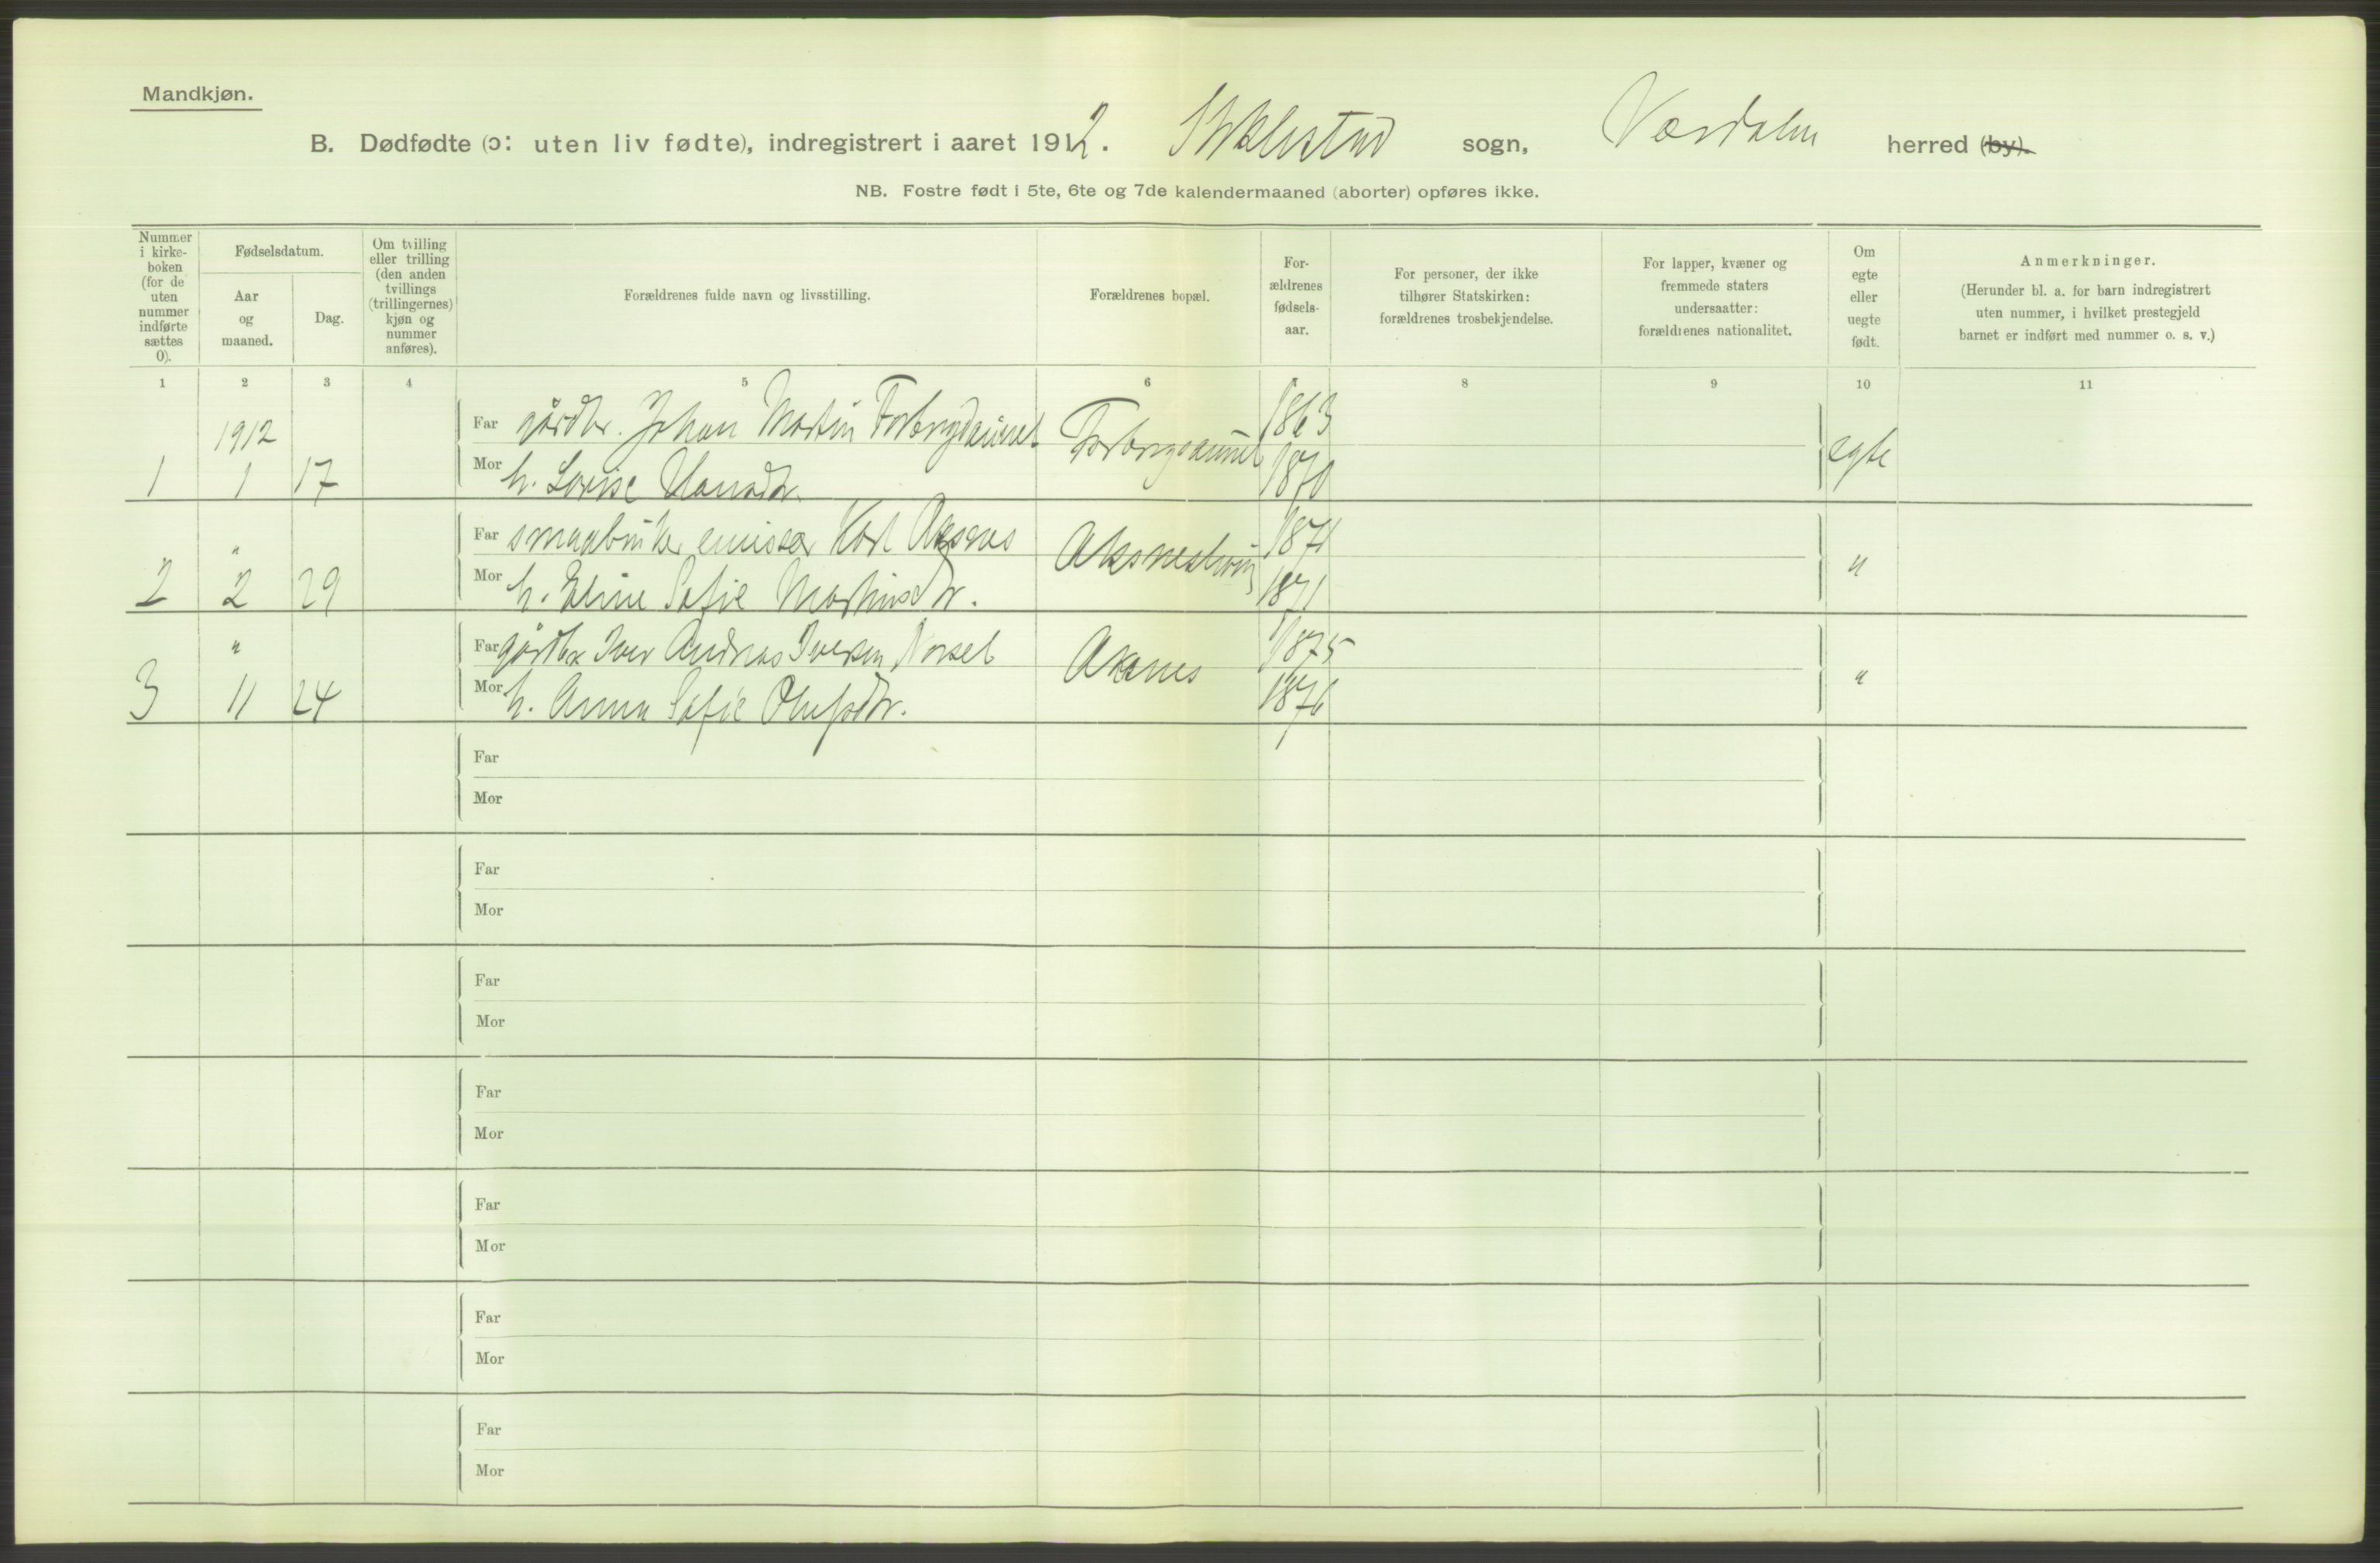 Mandkjøn.
B. Dødfødte (ɔ: uten liv fødte), indregistrert i aaret 1912. Stiklestad sogn, Værdalen herred (by).
NB. Fostre født i 5te, 6te og 7de kalendermaaned (aborter) opføres ikke.
Nummer i kirke-boken (for de uten nummer indførte sættes 0).
Fødselsdatum.
Aar og maaned.
Dag.
Om tvilling eller trilling (den anden tvillings (trillingernes) kjøn og nummer anføres).
Forældrenes fulde navn og livsstilling.
Forældrenes bopæl.
For-ældrenes fødsels-aar.
For personer, der ikke tilhører Statskirken: forældrenes trosbekjendelse.
For lapper, kvæner og fremmede staters undersaatter: forældrenes nationalitet.
Om egte eller uegte født.
Anmerkninger.
(Herunder bl. a. for barn indregistrert uten nummer, i hvilket prestegjeld barnet er indført med nummer o. s. v.)
1 2 3 4 5 6 7 8 9 10 11
1912
1 1 17
Far gårdbr. Johan Martin Forbregdaunet Forbregdaunet 1863 egte
Mor h. Lovise 1870
2 " 2 29
Far smaabruker emissær Karl Aksnes 1871 "
Mor h. Eline Sofie Martinsdtr. 1871
3 " 11 24
Far gårdbr Iver Andreas Iversen Aksnes 1875 "
Mor h. Anna Sofie Olufsdtr. 1876
Far
Mor
Far
Mor
Far
Mor
Far
Mor
Far
Mor
Far
Mor
Far
Mor